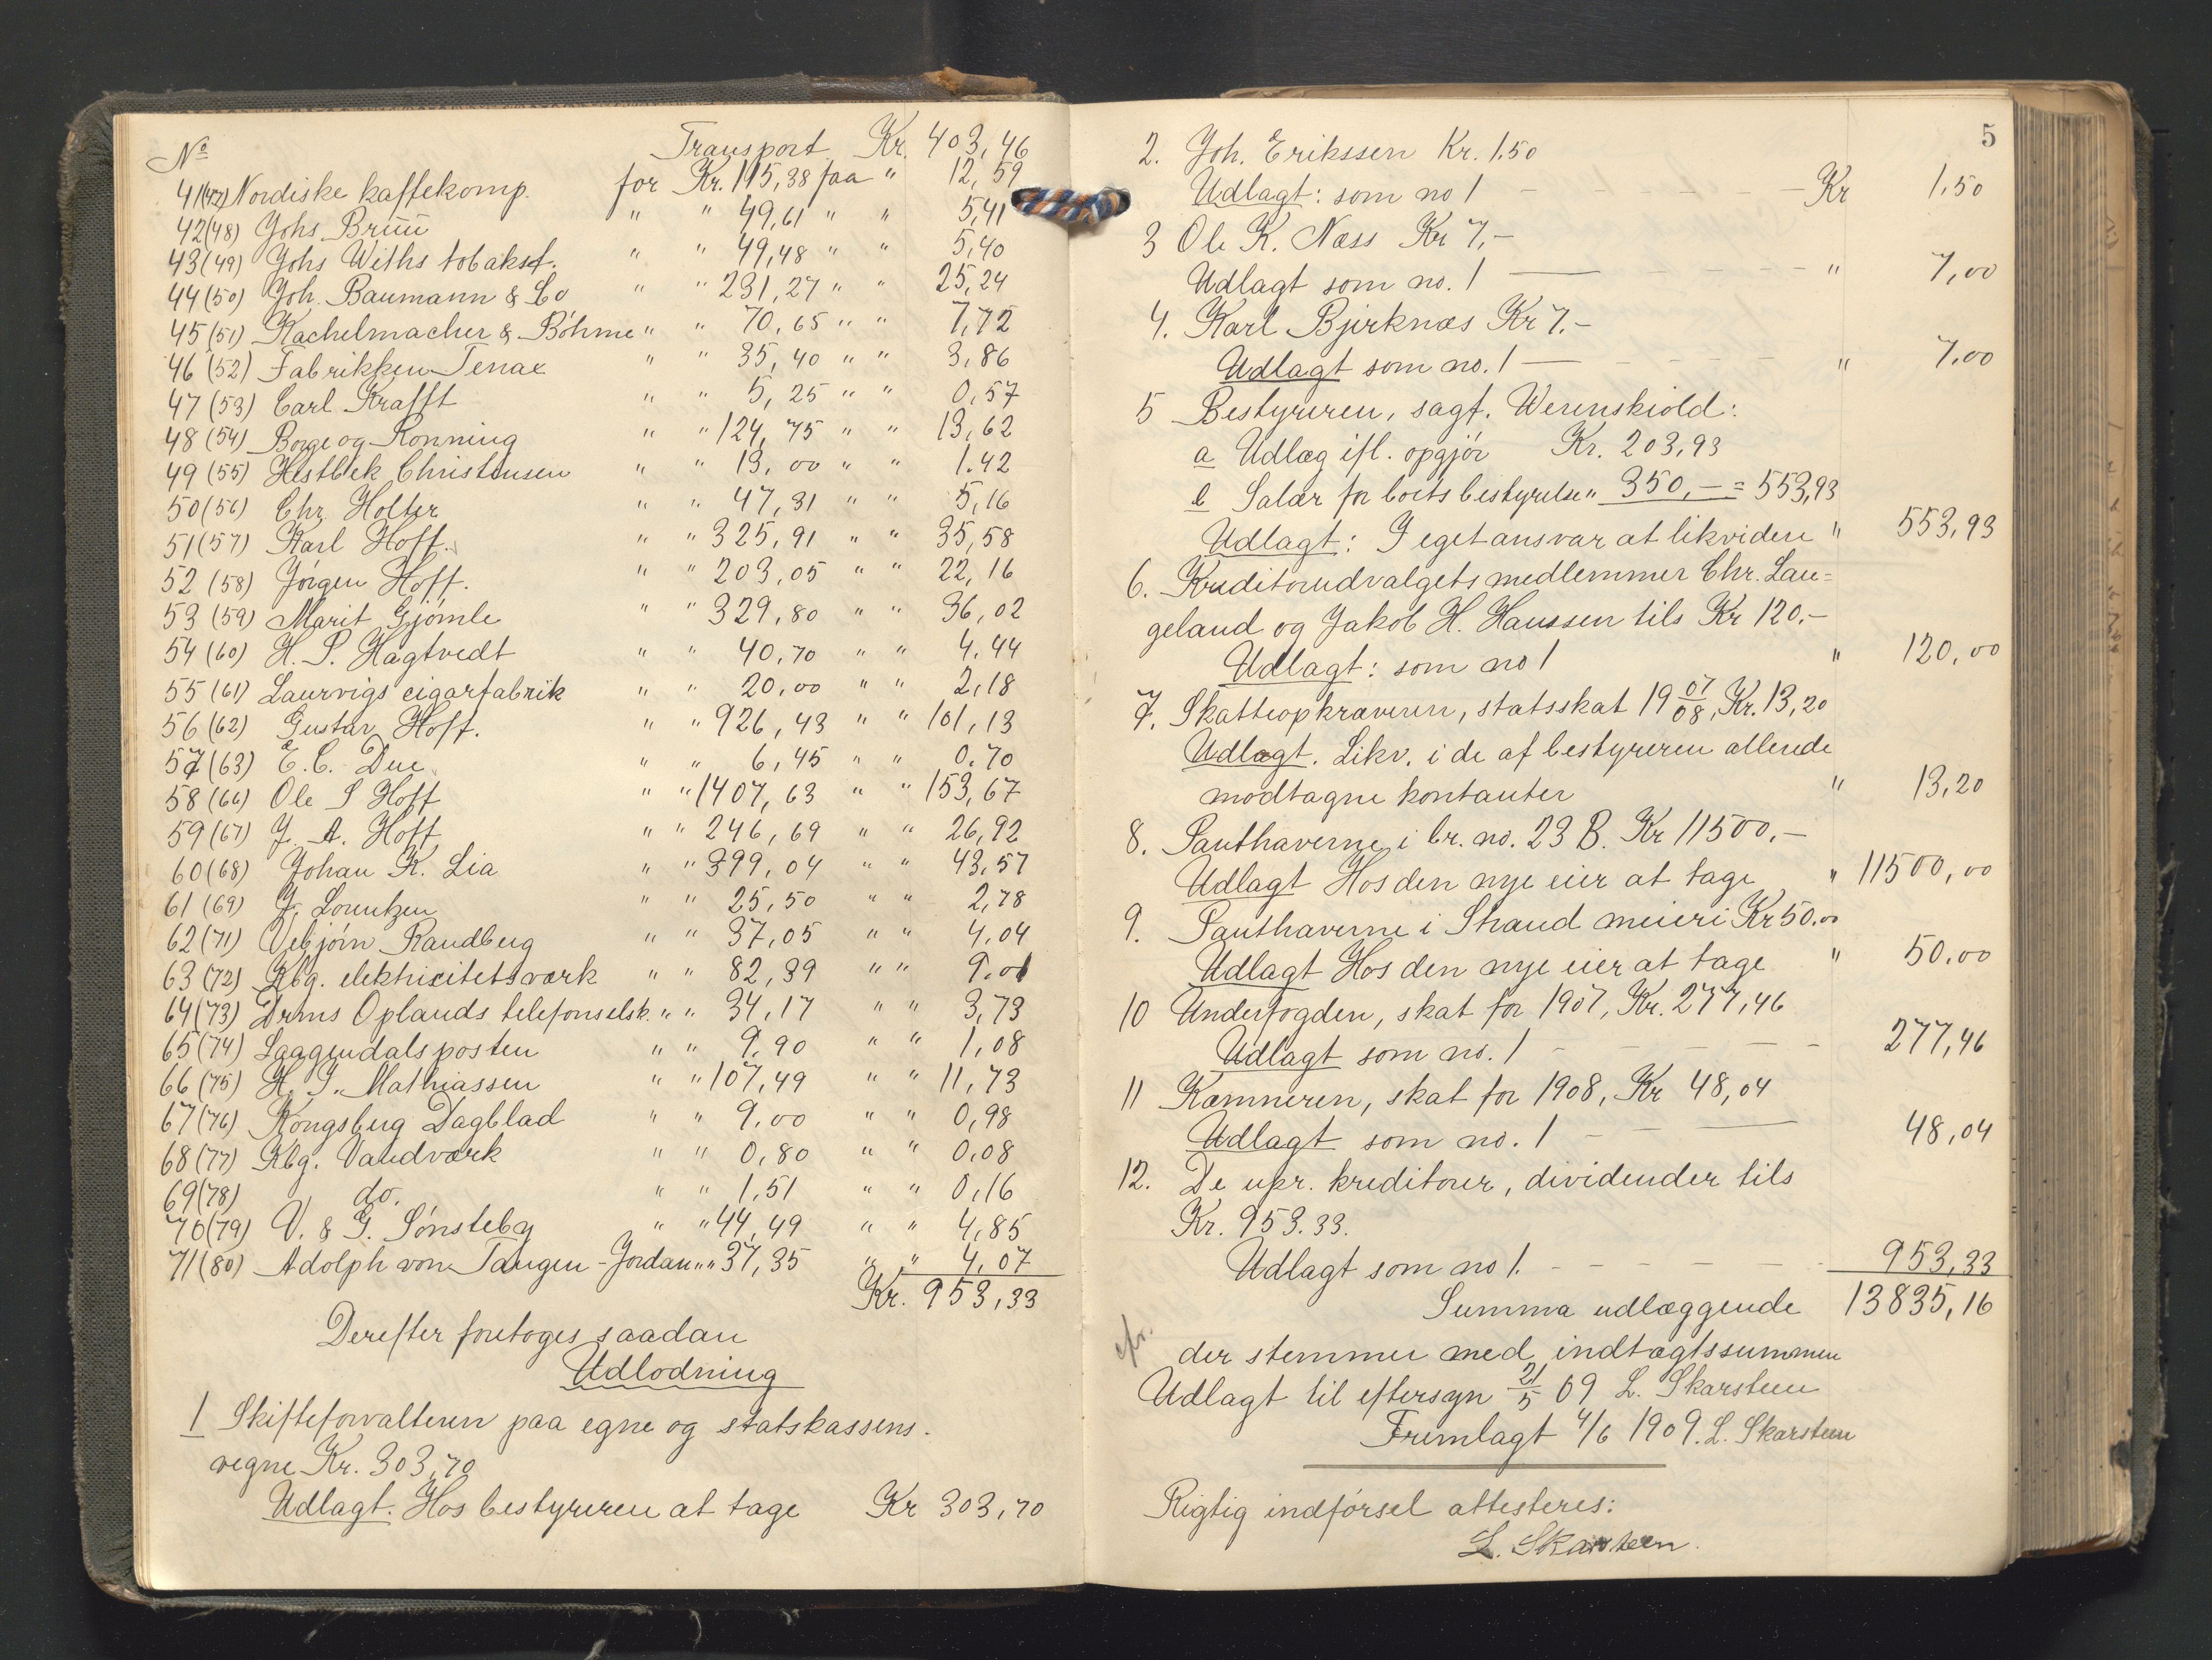 No Transport Kr. 403,46
41(47) Nordiske kaffekomp. for Kr. 115,38 faa " 12,59
42(48) Johs Bruu " " 49,61 " " 5,41
43(49) Johs Withs tobaksf. " " 49,48 " " 5,40
44(50) Joh. Baumann & Co " " 231,27 " " 25,24
45(51) Kachelmacher & Böhme " " 70,65 " " 7,72
46(52) Fabrikken Tenax " " 35,40 " " 3,86
47(53) Carl Krafft " " 5,25 " " 0,57
48(54) Borge og Rønning " " 124,75 " " 13,62
49(55) Hestbek Christensen " " 13,00 " " 1.42
50(56) Chr. Holter " " 47,31 " " 5,16
51(57) Karl Hoff. " " 325,91 " " 35,58
52(58) Jörgen Hoff. " " 203,05 " " 22,16
53(59) Marit Gjömle " " 329,80 " " 36,02
54(60) H. P. Hagtvedt " " 40,70 " " 4,44
55(61) Laurvigs cigarfabrik " " 20,00 " " 2,18
56(62) Gustav Hoff. " " 926,43 " " 101,13
57(63) E. C. Due " " 6,45 " " 0.70
58(66) Ole S Hoff " " 1407,63 " " 153,67
59(67) J. A. Hoff " " 246,69 " " 26,92
60(68) Johan K. Lia " " 399,04 " " 43,57
61(69) J. Lorentzen " " 25,50 " " 2,78
62(71) Vebjörn Randberg " " 37,05 " " 4,04
63(72) Kbg. elektricitetsværk " " 82,39 " " 9.01
64(73) Drms Oplands telefonselsk. " " 34,17 " " 3,73
65(74) Laagendalsposten " " 9,90 " " 1,08
66(75) H. J. Mathiassen " " 107,49 " " 11,73
67(76) Kongsberg Dagblad " " 9.00 " " 0,98
68(77) Kbg. Vandværk " " 0,80 " " 0,08
69(78) do. " " 1,51 " " 0,16
70(79) V. & G. Sönsteby " " 44,49 " " 4,85
71(80) Adolph von Tangen-Jordan " " 37,35 " " 4,07
Kr. 953,33
Derefter foretoges saadan
Udlodning
1 Skifteforvalteren paa egne og statskassens
vegne Kr. 303,70
Udlagt. Hos bestyreren at tage Kr 303,70
5
2. Joh. Erikssen Kr. 1.50
Udlagt: som no 1 - - - - - Kr 1.50
3 Ole K. Næss Kr 7,-
Udlagt som no. 1 - - - - " 7,00
4. Karl Bjerknæs Kr 7.-
Udlagt som no. 1 - - - - " 7.00
5 Bestyreren, sagf. Werenskiold:
a Udlæg ifl. opgjör Kr. 203,93
b Salær for boets bestyrelse " 350,- = 553,93
Udlagt: I eget ansvar at likvidere " 553,93
6. Kreditorudvalgets medlemmer Chr. Lan=
geland og Jakob H. Hanssen tils Kr 120.-
Udlagt: som no 1 " 120,00
7. Skatteopkræveren, statsskat 19 07/08, Kr. 13,20
Udlagt. Likv. i de af bestyreren allerede
modtagne kontanter " 13,20
8. Panthaverne i br. no. 23 B. Kr 11500,-
Udlagt Hos den nye eier at tage " 11500,00
9. Panthaverne i Strand meieri Kr 50.00
Udlagt Hos den nye eier at tage " 50.00
10 Underfogden, skat for 1907, Kr. 277,46
Udlagt som no. 1 - - - - - 277,46
11 Kæmneren, skat for 1908, Kr 48,04
Udlagt som no. 1 - - - 48,04
12. De upr. kreditorer, dividender tils
Kr. 953.33.
Udlagt som no 1. - - - - - 953,33
Summa udlæggende 13835,16
cfr. der stemmer med indtægtssummen
Udlagt til eftersyn 21/5 09 L. Skarsteen
Fremlagt 4/6 1909. L. Skarsteen
Rigtig indförsel attesteres:
L. Skarsteen.